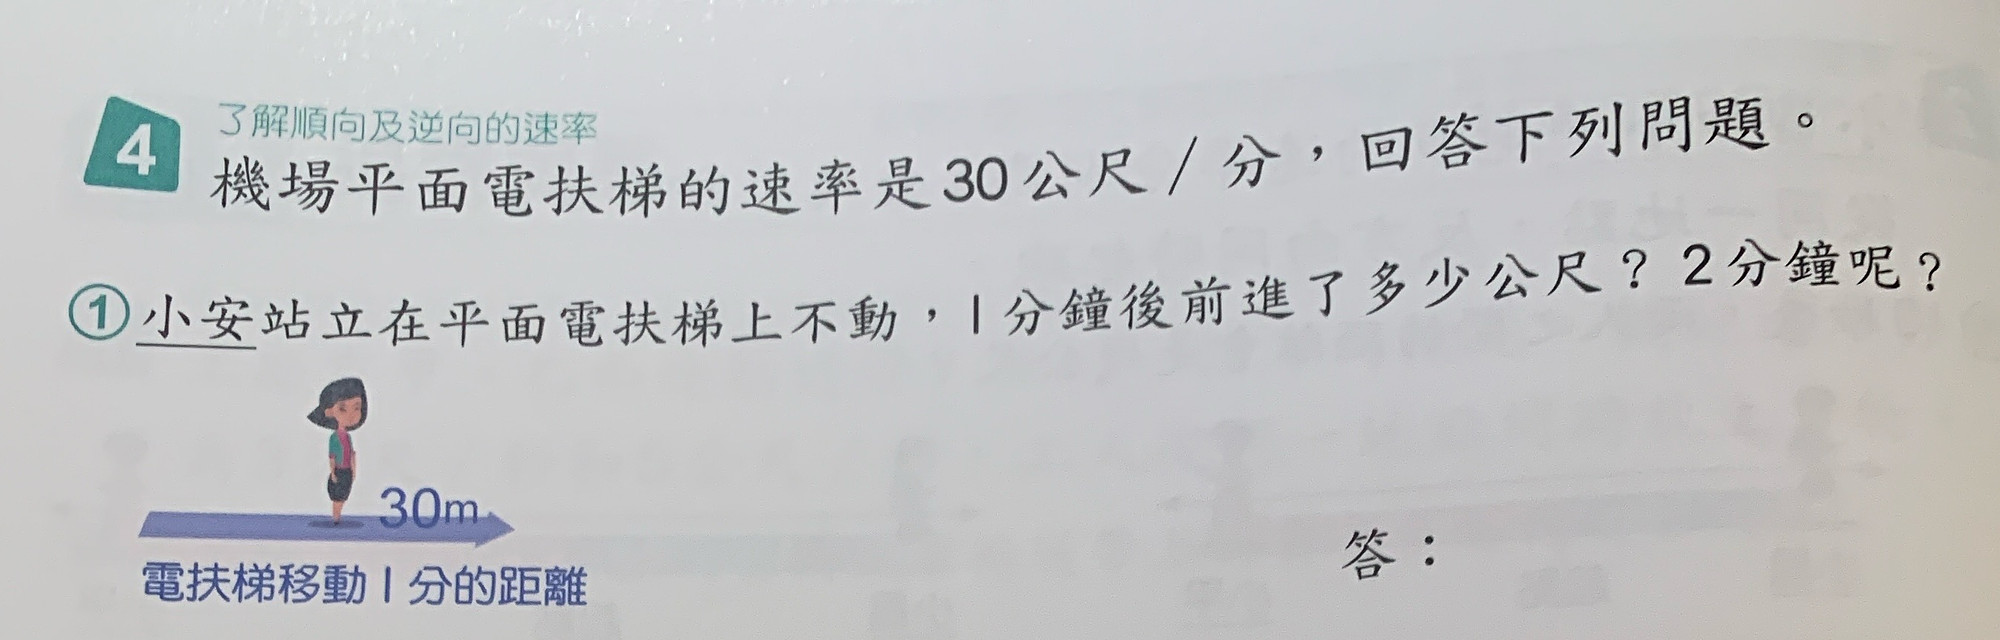 4
了解順向及逆向的速率
機場平面電扶梯的速率是30公尺／分，回答下列問題。
①小安站立在平面電扶梯上不動，1分鐘後前進了多少公尺？2分鐘呢？
30m
電扶梯移動1分的距離
答：